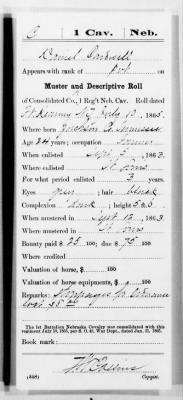 C | 1 Cav. | Neb.
Daniel
Appears with rank of Pvt on
Muster and Descriptive Roll
of Consolidated Co., 1 Reg't Neb. Cav. Roll dated
Ft. Kearny N.T. July 10, 1865.
Where born Jackson Co. Missouri
Age 24 years; occupation Farmer
When enlisted Sept 5, 1863
Where enlisted St. Louis
For what period enlisted 3 years.
Eyes ; hair black
Complexion dark; height 5 ft. 5 in.
When mustered in Sept 12, 1863
Where mustered in St. Louis
Bounty paid $ 25 100; due $ 75 100
Where credited
Valuation of horse, $ 100
Valuation of horse equipments, $ 100
Remarks: Stoppages for Ordnance
lost $
The 1st Battalion Nebraska Cavalry was consolidated with this
regiment July 10, 1865, per S. O. 41, War Dept. dated Jan. 31, 1865.
Book mark:
Collins
(358) Copyist.